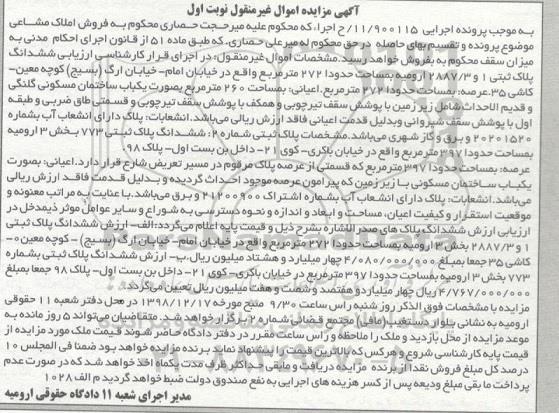 آگهی مزایده اموال غیرمنقول نوبت اول
به موجب پرونده اجرایی ۱۱/۹۰۰۱۱۵/ح اجرا، که محکوم علیه میرحجت حصاری محکوم به فروش املاک مشاعی
موضوع پرونده و تقسیم بهای حاصله در حق محکوم له میرعلی حصاری، که طبق ماده ۵۱ از قانون اجرای احکام مدنی به
میزان سقف محکوم به بفروش خواهد رسید. مشخصات اموال غیرمنقول: در اجرای قرار کارشناسی ارزیابی ششدانگ
پلاک ثبتی ۱ و ۲۸۸۷/۳ ارومیه بمساحت حدودا ۲۷۲ مترمربع واقع در خیابان امام- خیابان ارگ (بسیج) کوچه معین-
کاشی ۳۵. عرصه: بمساحت حدودا ۲۷۲ مترمربع. اعیانی: بمساحت ۲۶۰ مترمربع بصورت یکباب ساختمان مسکونی گلنگی
و قدیم الاحداث شامل زیرزمین با پوشش سقف تیرچوبی و همکف با پوشش سقف تیرچوبی و قسمتی طاق ضربی و طبقه
اول با پوشش سقف شیروانی وبدلیل قدمت اعیانی فاقد ارزش ریالی می باشد. انشعابات: پلاک دارای انشعاب آب بشماره
۲۰۲۰۱۵۲۰ و برق و گاز شهری می‌باشد. مشخصات پلاک ثبتی شماره ۲: ششدانگ پلاک ثبتی ۷۷۳ بخش ۳ ارومیه
بمساحت حدودا ۳۹۷ مترمربع واقع در خیابان باکری- کوی ۲۱- داخل بن بست اول- پلاک ۹۸.
عرصه: بمساحت حدودا ۳۹۷ مترمربع که قسمتی از عرصه پلاک مرقوم در مسیر تعریض شارع قرار دارد. اعیانی: بصورت
یکباب ساختمان مسکونی با زیرزمین که پیرامون عرصه موجود احداث گردیده و بدلیل قدمت فاقد ارزش ریالی
می‌باشد. انشعابات: پلاک دارای انشعاب آب بشماره اشتراک ۲۱۲۰۰۹۰۰ و برق می‌باشد. با عنایت به مراتب معنونه و
موقعیت استقرار و کیفیت اعیان، مساحت و ابعاد و اندازه و نحوه دسترسی به شوراع و سایر عوامل موثر ذیمدخل در
ارزیابی ارزش ششدانگ پلاک های صدرالاشاره بشرح ذیل و قیمت پایه اعلام می‌گردد: الف- ارزش ششدانگ پلاک ثبتی
۱ و ۲۸۸۷/۳ بخش ۳ ارومیه بمساحت حدودا ۲۷۲ مترمربع واقع در خیابان امام- خیابان ارگ (بسیج) - کوچه معین -
کاشی ۳۵ جمعا بمبلغ ۴/۰۸۰/۰۰۰/۰۰۰ چهار میلیارد و هشتاد میلیون ریال. ب- ارزش ششدانگ پلاک ثبتی بشماره
۷۷۳ بخش ۳ ارومیه بمساحت حدودا ۳۹۷ مترمربع در خیابان باکری- کوی ۲۱- داخل بن بست اول- پلاک ۹۸ جمعا بمبلغ
۴/۷۶۷/۰۰۰/۰۰۰ ریال چهار میلیارد و هفتصد و شصت و هفت میلیون ریال تعیین می‌گردد.
مزایده با مشخصات فوق الذکر روز شنبه راس ساعت ۹/۳۰ صبح مورخه ۱۳۹۸/۱۲/۱۷ در محل دفتر شعبه ۱۱ حقوقی
ارومیه به نشانی بلوار دستغیب (مافی) مجتمع قضائی شماره ۲ برگزار خواهد شد. متقاضیان می‌تواند ۵ روز مانده به
موعد مزایده از محل بازدید و ملک را ملاحظه و راس ساعت مقرر در دفتر دادگاه حاضر شوند قیمت ملک مورد مزایده از
قیمت پایه کارشناسی شروع و هرکس که بالاترین قیمت را پیشنهاد نماید برنده مزایده خواهد بود ضمنا فی المجلس ۱۰
درصد کل مبلغ فروش نقدا از برنده مزایده دریافت و مابقی حداکثر ظرف مدت یکماه اخذ خواهد شد که در صورت عدم
پرداخت ما بقی مبلغ ودیعه پس از کسر هزینه های اجرایی به نفع صندوق دولت ضبط خواهد گردید م الف ۱۰۲۸
مدیر اجرای شعبه ۱۱ دادگاه حقوقی ارومیه